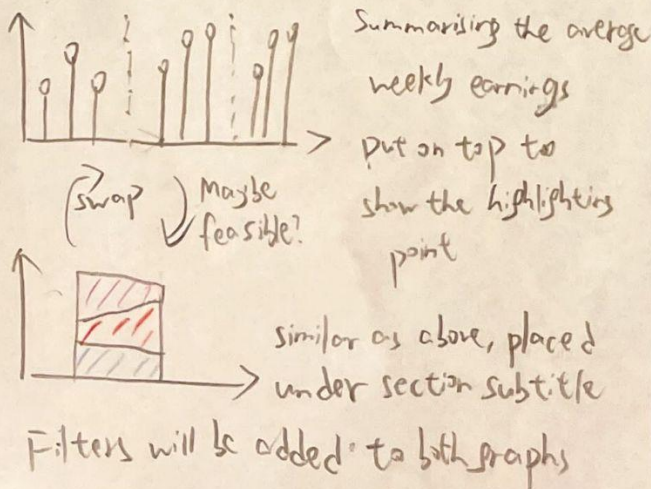 Summarising the average
weekly earnings
put on top to
show the highlighting
point
swap
Maybe
feasible?
similar as above, placed
under section subtitle
Filters will be added to both graphs